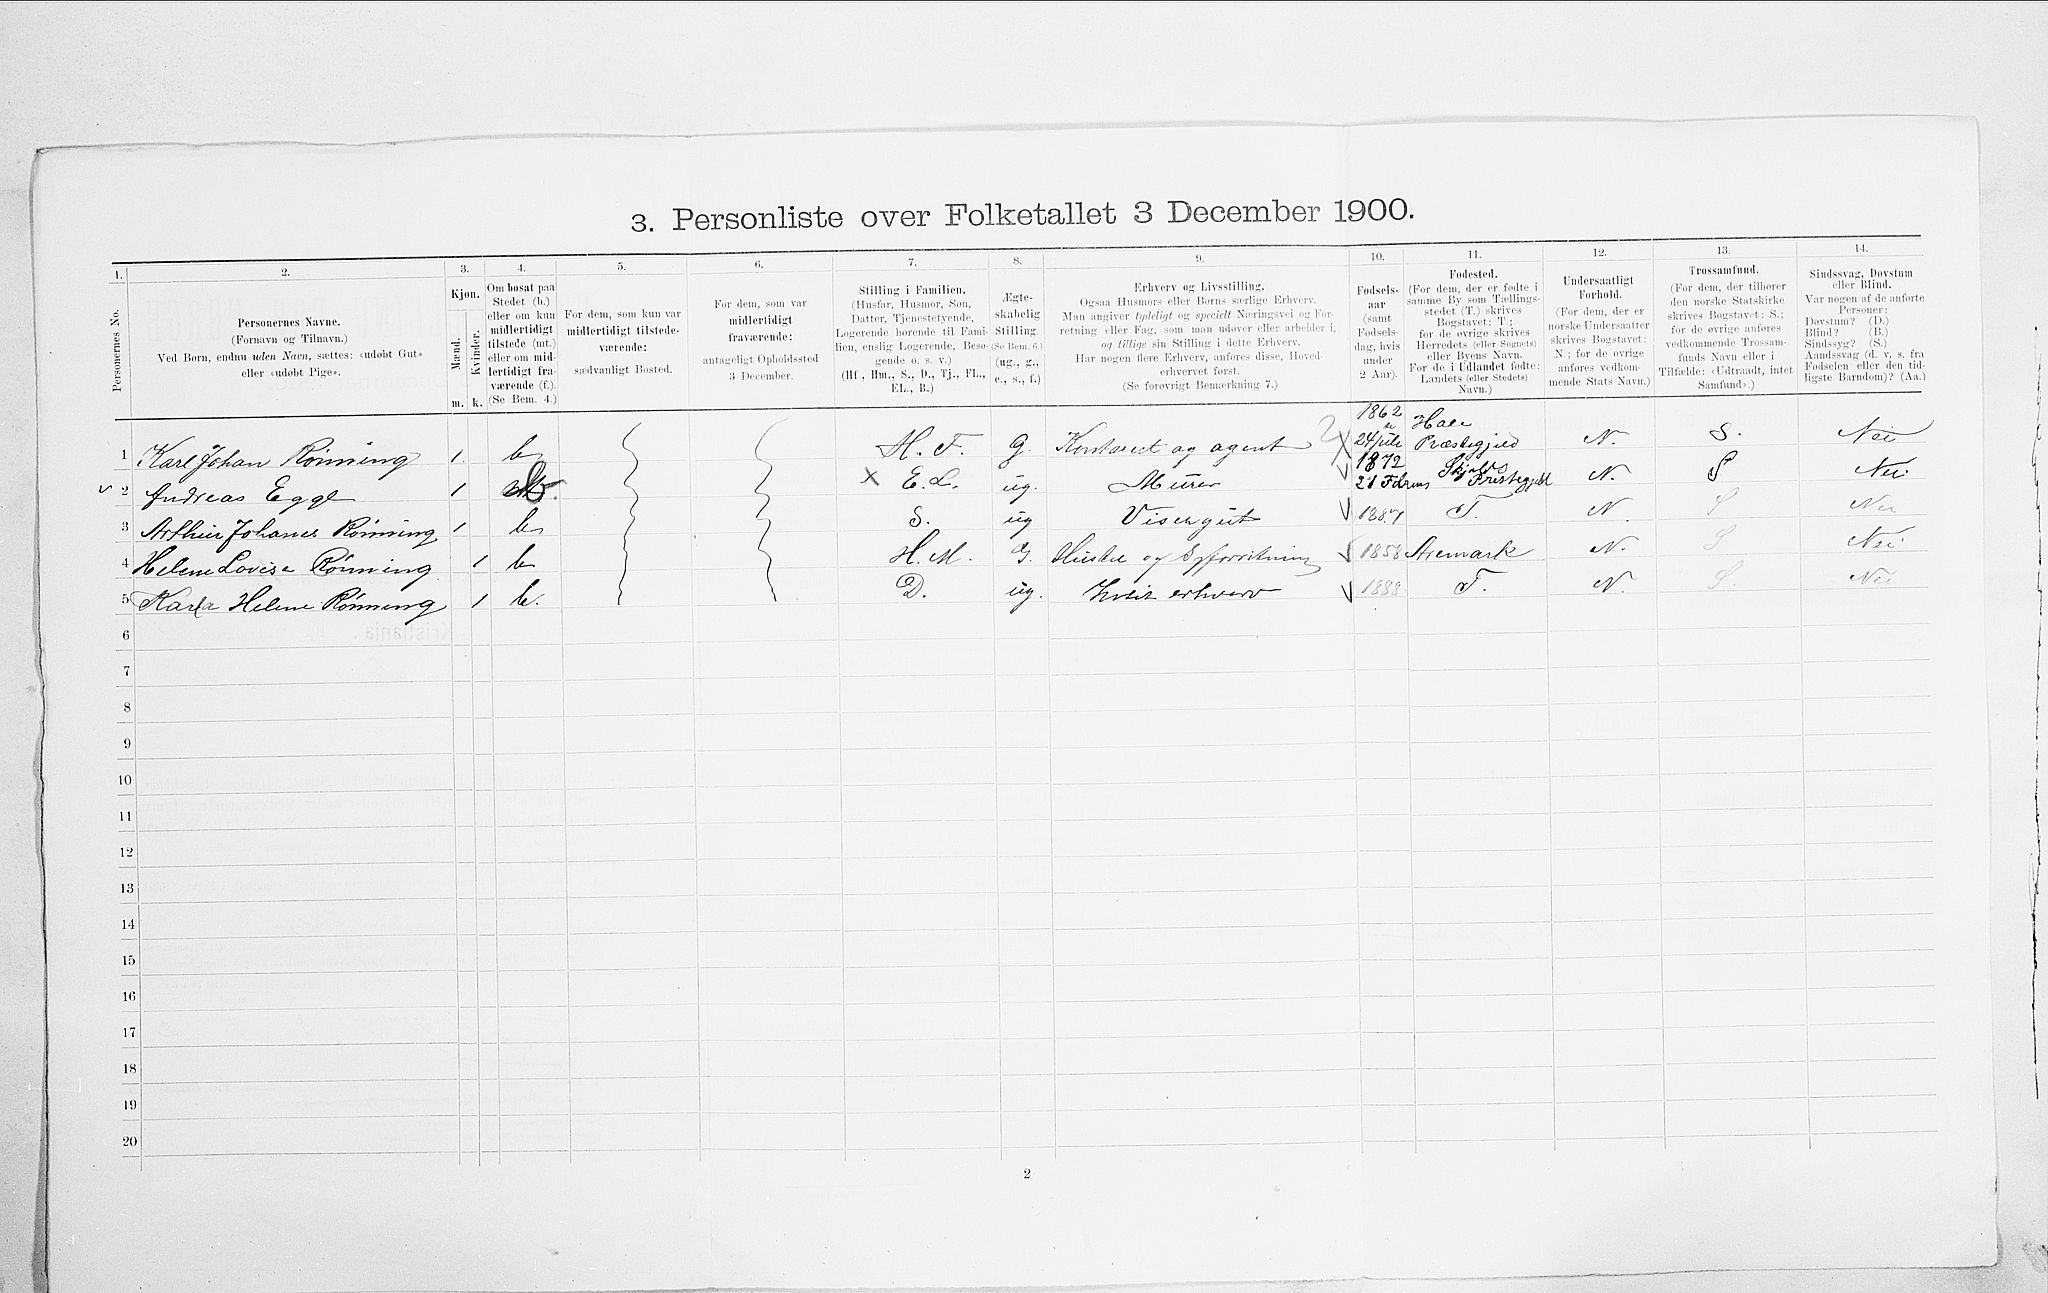 3. Personliste over Folketallet 3 December 1900.
1. 2. 3. 4. 5. 6. 7. 8. 9. 10. 11. 12. 13. 14.
Personernes No.
Personernes Navne.
(Fornavn og Tilnavn.)
Ved Børn, endnu uden Navn, sættes: «udøbt Gut»
eller «udøbt Pige».
Kjøn.
Mænd. Kvinder.
m. k.
Om bosat paa
Stedet (b.)
eller om kun
midlertidigt
tilstede (mt.)
eller om mid-
lertidigt fra-
værende (f.).
(Se Bem. 4.)
For dem, som kun var
midlertidigt tilstede-
værende:
sædvanligt Bosted.
For dem, som var
midlertidigt
fraværende:
antageligt Opholdssted
3 December.
Stilling i Familien.
(Husfar, Husmor, Søn,
Datter, Tjenestetyende,
Logerende hørende til Fami-
lien, enslig Logerende, Besø-
gende o. s. v.)
(Hf , Hm., S., D., Tj., FL.,
EL., B.)
Ægte-
skabelig
Stilling.
(Se Bem. 6.)
(ug., g.,
e., s., f.)
Erhverv og Livsstilling.
Ogsaa Husmors eller Børns særlige Erhverv.
Man angiver tydeligt og specielt Næringsvei og For-
retning eller Fag, som man udøver eller arbeider i,
og tillige sin Stilling i dette Erhverv.
Har nogen flere Erhverv, anføres disse, Hoved-
erhvervet først.
(Se forøvrigt Bemærkning 7.)
Fødsels-
aar
(samt
Fødsels-
dag, hvis
under
2 Aar).
Fødested.
(For dem, der er fødte i
samme By som Tællings-
stedet (T.) skrives
Bogstavet: T.;
for de øvrige skrives
Herredets (eller Sognets)
eller Byens Navn.
For de i Udlandet fødte:
Landets (eller Stedets)
Navn.)
Undersaatligt
Forhold.
(For dem, der er
norske Undersaatter
skrives Bogstavet:
N.; for de øvrige
anføres vedkom-
mende Stats Navn.)
Trossamfund.
(For dem, der tilhører
den norske Statskirke
skrives Bogstavet: S.;
for de øvrige anføres
vedkommende Trossam-
funds Navn eller i
Tilfælde: «Udtraadt, intet
Samfund».)
Sindssvag, Døvstum
eller Blind.
Var nogen af de anførte
Personer:
Døvstum? (D.)
Blind? (B.)
Sindssyg? (S.)
Aandssvag (d. v. s. fra
Fødselen eller den tid-
ligste Barndom)? (Aa.)
1 Karl Johan Rønning 1. b H. F. G. og agent 1862 24 juli Præstegjeld N. S. Nei
2 Andreas Egge 1 b. x E. L. ug. Murer 1872 21 N. S Nei
3 Arthur Johanes Rønning 1 b S. ug Visergut 1887 T. N. S Nei
4 Helene Lovise Rønning 1 b H. M. G. og 1858 Aremark N. S Nei
5 Karla Helene Rønning 1 b. D. ug. erhverv 1888 T. N. S. Nei
6
7
8
9
10
11
12
13
14
15
16
17
18
19
20
2